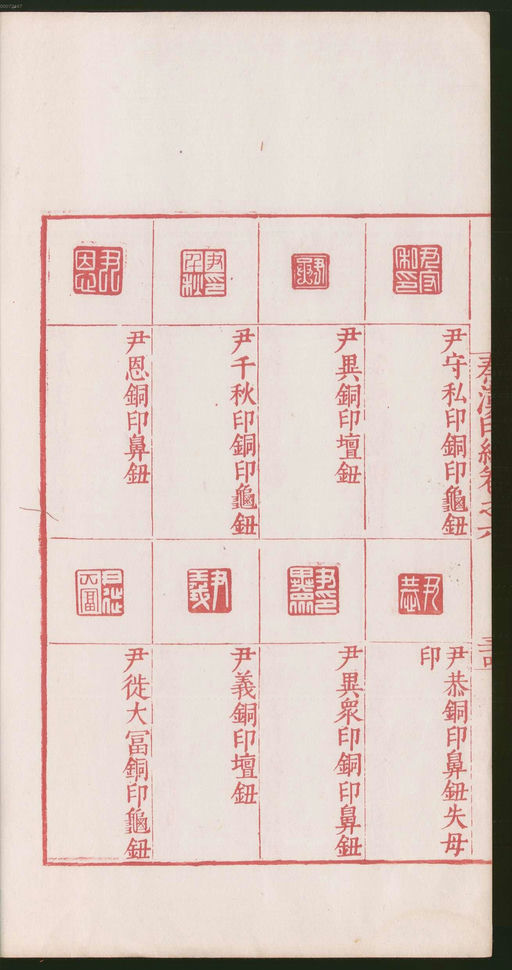 秦漢印統卷之六
尹守私印銅印龜鈕
尹異銅印壇鈕
尹千秋印銅印龜鈕
尹恩銅印鼻鈕
尹恭銅印鼻鈕失母
印
尹異衆印銅印鼻鈕
尹義銅印壇鈕
尹徙大冨銅印龜鈕